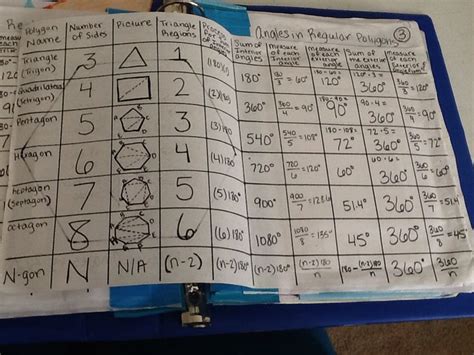 Angles in Regular Polygons ③
Polygon Name Number of Sides Picture Triangle Regions Process for Sum of Interior angles measure of each Interior Angle measure of each exterior angle Sum of the exterior angles measure of each exterior
Triangle (Trigon) 3 1 (1)180 180° 180/3 = 60° 180-60= 120° 120·3= 360° 360/3 = 120°
(Tetrigon) 4 2 (2)180 360° 360/4 = 90° 90° 90·4= 360° 360/4 = 90°
Pentagon 5 3 (3)180 540° 540/5 = 108° 180-108= 72° 72·5= 360° 360/5 = 72°
Hexagon 6 4 (4)180 720° 720/6 = 120° 60° 60·6= 360° 360/6 = 60°
Heptagon (Septagon) 7 5 (5)180° 900° 900/7 = 128.6 51.4° 360° 360/7 = 51.4
Octagon 8 6 (6)180° 1080° 1080/8 = 135° 45° 360° 360/8 = 45°
N-gon N N/A (n-2) (n-2)180 (n-2)180 (n-2)180/n 180-(n-2)180/n 360° 360/n